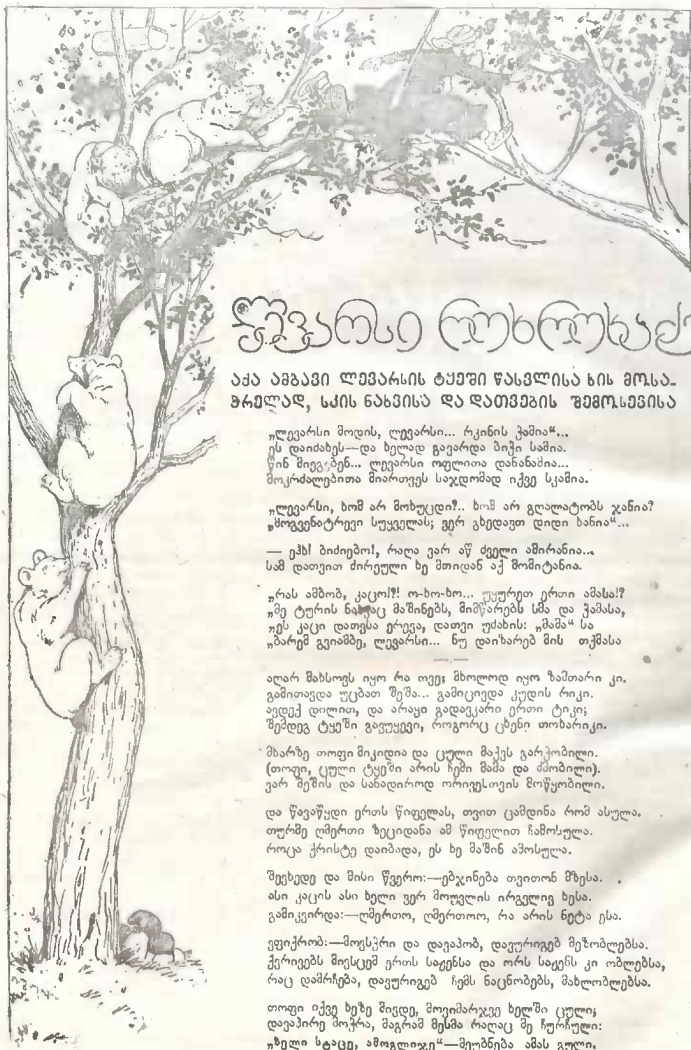 ლევარსი რუხრუხაძე
აქა ამბავი ლევარსის ტყეში წასვლისა ხის მოსა-
ჭრელად, სკის ნახვისა და დათვების შემოსევისა
„ლევარსი მოდის, ლევარსი... რკინის ჰამია“...
ეს დაიძახეს—და ხელად გავარდა ბიჭი სამია.
წინ მიეგებნენ... ლევარსი ოფლითა დანანამია...
მოკრძალებითა მიართვეს საჯდომად იქვე სკამია.
„ლევარსი, ხომ არ მოხუცდი?.. ხომ არ გღალატობს ჯანია?
„მოგვენატრევი სუყველას; ვერ გხედავთ დიდი ხანია“...
— ეჰხ! ბიძიებო!, რაღა ვარ აწ ძველი ამირანია...
სამ დათვით ძირეული ხე მთიდან აქ მომიტანია.
„რას ამბობ, კაცო!?! ო-ხო-ხო... უყურეთ ერთი ამასა!?
„მე ტურის ნახვაც მაშინებს, მიმწარებს სმა და ჭამასა,
„ეს კაცი დათვსა ერევა, დათვი უძახის: „მამა“ სა
„ბარემ გვიამბე, ლევარსი... ნუ დაიზარებ მის თქმასა
აღარ მახსოვს იყო რა თვე; მხოლოდ იყო ზამთარი კი.
გამითავდა უცბათ შეშა... გამიცივდა კუდის რიკი.
ავდექ დილით, და არაყი გადავკარი ერთი ტიკი;
შემდეგ ტყეში გავუყევი, როგორც ცხენი თოხარიკი.
მხარზე თოფი მიკიდია და ცული მაქვს გარჭობილი.
(თოფი, ცული ტყეში არის ჩემი მამა და ძმობილი).
ვარ შეშის და სანადიროდ ორივესთვის მოწყობილი.
და წავაწყდი ერთს წიფელას, თვით ცამდინა რომ ასულა.
თურმე ღმერთი ზეციდანა ამ წიფელით ჩამოსულა.
როცა ქრისტე დაიბადა, ეს ხე მაშინ ამოსულა.
შევხედე და მისი წვერო:—ებჯინება თვითონ მზესა.
ასი კაცის ასი ხელი ვერ მოუვლის ირგვლივ ხესა.
გამიკვირდა:—ღმერთო, ღმერთოო, რა არის ნეტა ესა.
ვფიქრობ:—მოვსჭრი და დავაპობ, დავურიგებ მეზობლებსა.
ქვრივებს მივსცემ ერთს საჟენსა და ორს საჟენს კი ობლებსა,
რაც დამრჩება, დავურიგებ ჩემს ნაცნობებს, მახლობლებსა.
თოფი იქვე ხეზე მივდე, მოვიმარჯვე ხელში ცული;
დავაპირე მოჭრა, მაგრამ მესმა რაღაც მე ჩურჩული:
„ხელი სტაცე, ამოგლიჯე“—მეუბნება ამას გული,